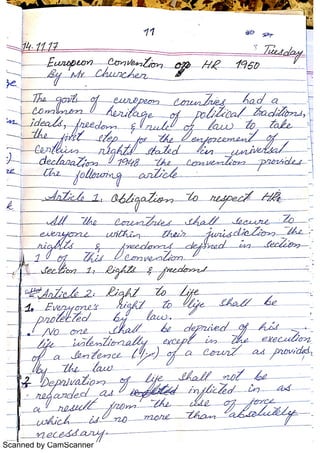 11
14.11.17
Tuesday
European Convention on HR 1950
By Mr Churcher
The govt of european countries had a
common heritage of political traditions,
ideals, freedom & rule of law to take
the first step for the enforcement of
certain rights stated in universal
declaration 1948 the convention provides
the following article
Article 1: Obligation to respect HR
All the countries shall secure to
everyone within their jurisdiction the
rights & freedoms defined in section
1 of this convention
Section 1: Rights & freedoms
Article 2: Right to life
1. Everyone's right to life shall be
protected by law.
No one shall be deprived of his
life intentionally except in the execution
of a sentence of a court as provided,
by the law
2. Deprivation of life shall not be
regarded as inflicted in as
a result from the use of force
which is no more than absolutely
necessary.
Scanned by CamScanner